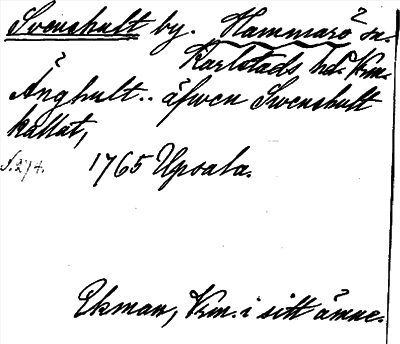 Svenshult by. Hammarö sn.
Karlstads hd. Vrm.
Ånghult.. äfwen Swenshult
kallat,
S. 274.
1765 Upsala.
Ekman, Vrm. i sitt ämne.